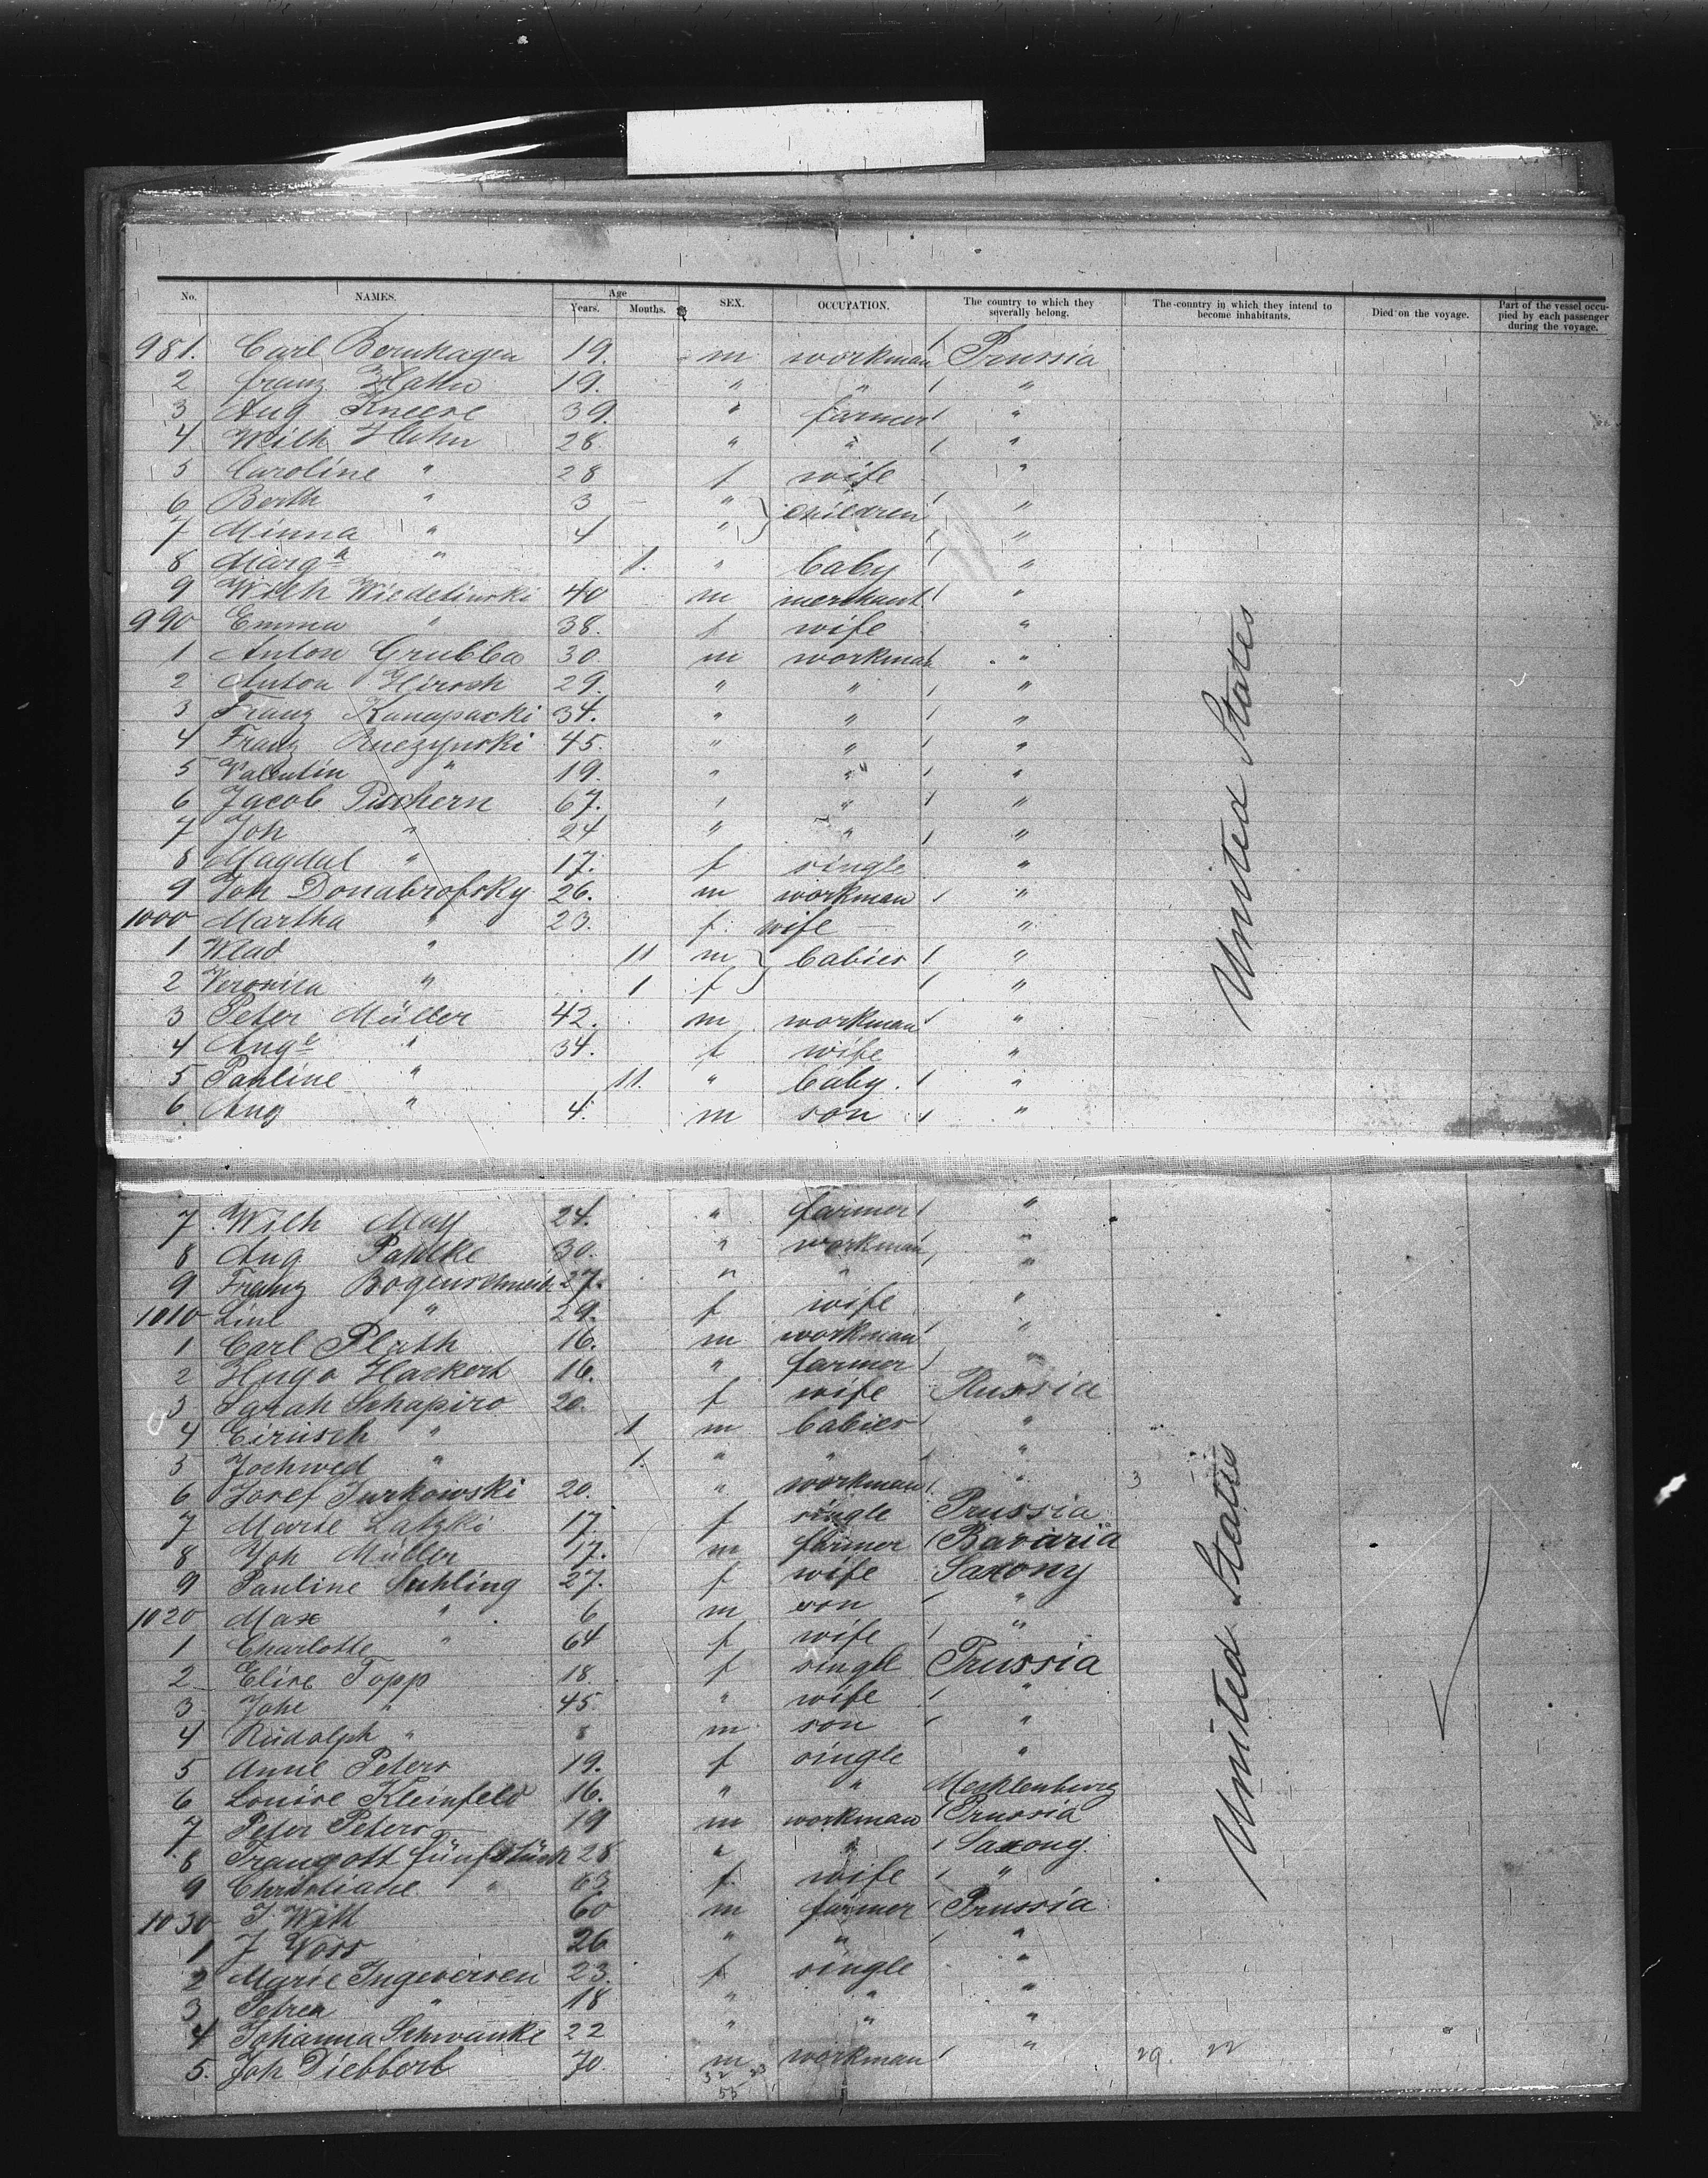 No. NAMES. Age Years. Months. SEX. OCCUPATION. The country to which they severally belong. The country in which they intend to become inhabitants. Died on the voyage. Part of the vessel occupied by each passenger during the voyage.
981. Carl Bernhagen 19. m workman Prussia
2 Franz Hahn 19. " " "
3 Aug Kneese 39. " farmer "
4 Wilh Hahn 28 " " "
5 Caroline " 28 f wife "
6 Berth " 3 " children "
7 Minna " 4 " "
8 Marg a " 1. " baby "
9 Wilh 40 m merchant "
990 Emma " 38. f wife "
1 Anton Grubba 30 m workman "
2 Anton Hirsch 29. " " "
3 Franz Kanapacki 34. " " "
4 Franz 45. " " "
5 Valentin " 19. " " "
6 Jacob Puchern 67. " " "
7 Joh " 24 " " "
8 Magdal " 17. f single "
9 Joh Donabrofsky 26. m workman "
1000 Martha " 23. f. wife "
1 Wlad " 11 m babies "
2 Veronica " 1 f "
3 Peter Müller 42. m workman "
4 Aug e " 34. f wife "
5 Pauline " 11. " baby. "
6 Aug " 4. m son "
7 Wilh May 24. " farmer "
8 Aug Pahlke 30. " workman "
9 Franz 27. " " "
1010 Line " 29. f wife "
1 Carl Plath 16. m workman "
2 Hugo Hackert 16. " farmer "
3 Sarah Schapiro 20. f wife Russia
4 Eirusch " 1 m babies "
5 Jochwed " 1. " " "
6 Josef Turkowski 20. " workman " 3
7 Marie Latzki 17. f single Prussia
8 Joh Müller 17. m farmer Bavaria
9 Pauline 27. f wife Saxony
1020 Max " 6 m son "
1 Charlotte " 64 f wife "
2 Elise Topp 18. f single Prussia
3 Johe " 45. " wife "
4 Rudolph " 8 m son "
5 Anne Peters 19. f single "
6 Louise Kleinfeld 16. " " Mecklenburg
7 Peter Peters 19 m workman Prussia
8 Traugott Fünfstück 28 " " Saxony
9 Christiane " 63 f wife "
1030 J. Witt 60 m farmer Prussia
1 J Voss 26 " " "
2 Marie Ingwersen 23. f single "
3 Petrea " 18 " " "
4 Johanna Schwanke 22 " " "
5. Joh Diebbert 70. m workman " 29. 22
32 23
55
United States
United States